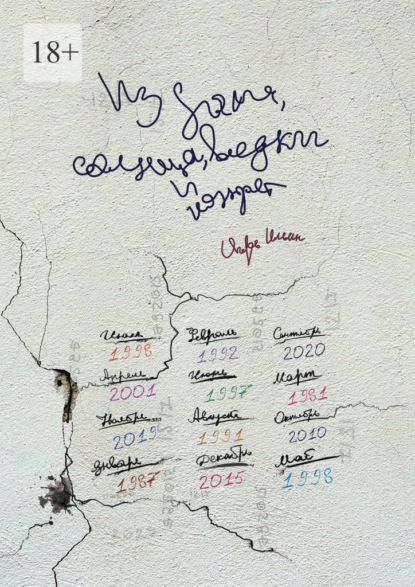 18+
Из дыма,
солнца, водки
и конфет
Игорь
Июль Февраль Сентябрь
1998 1992 2020
Апрель Июнь Март
2001 1997 1981
Ноябрь Август Октябрь
2019 1991 2010
Январь Декабрь Май
1987 2015 1998